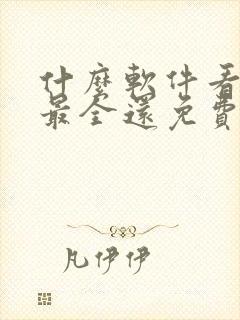 什麼軟件看
最全還免費
凡伊伊